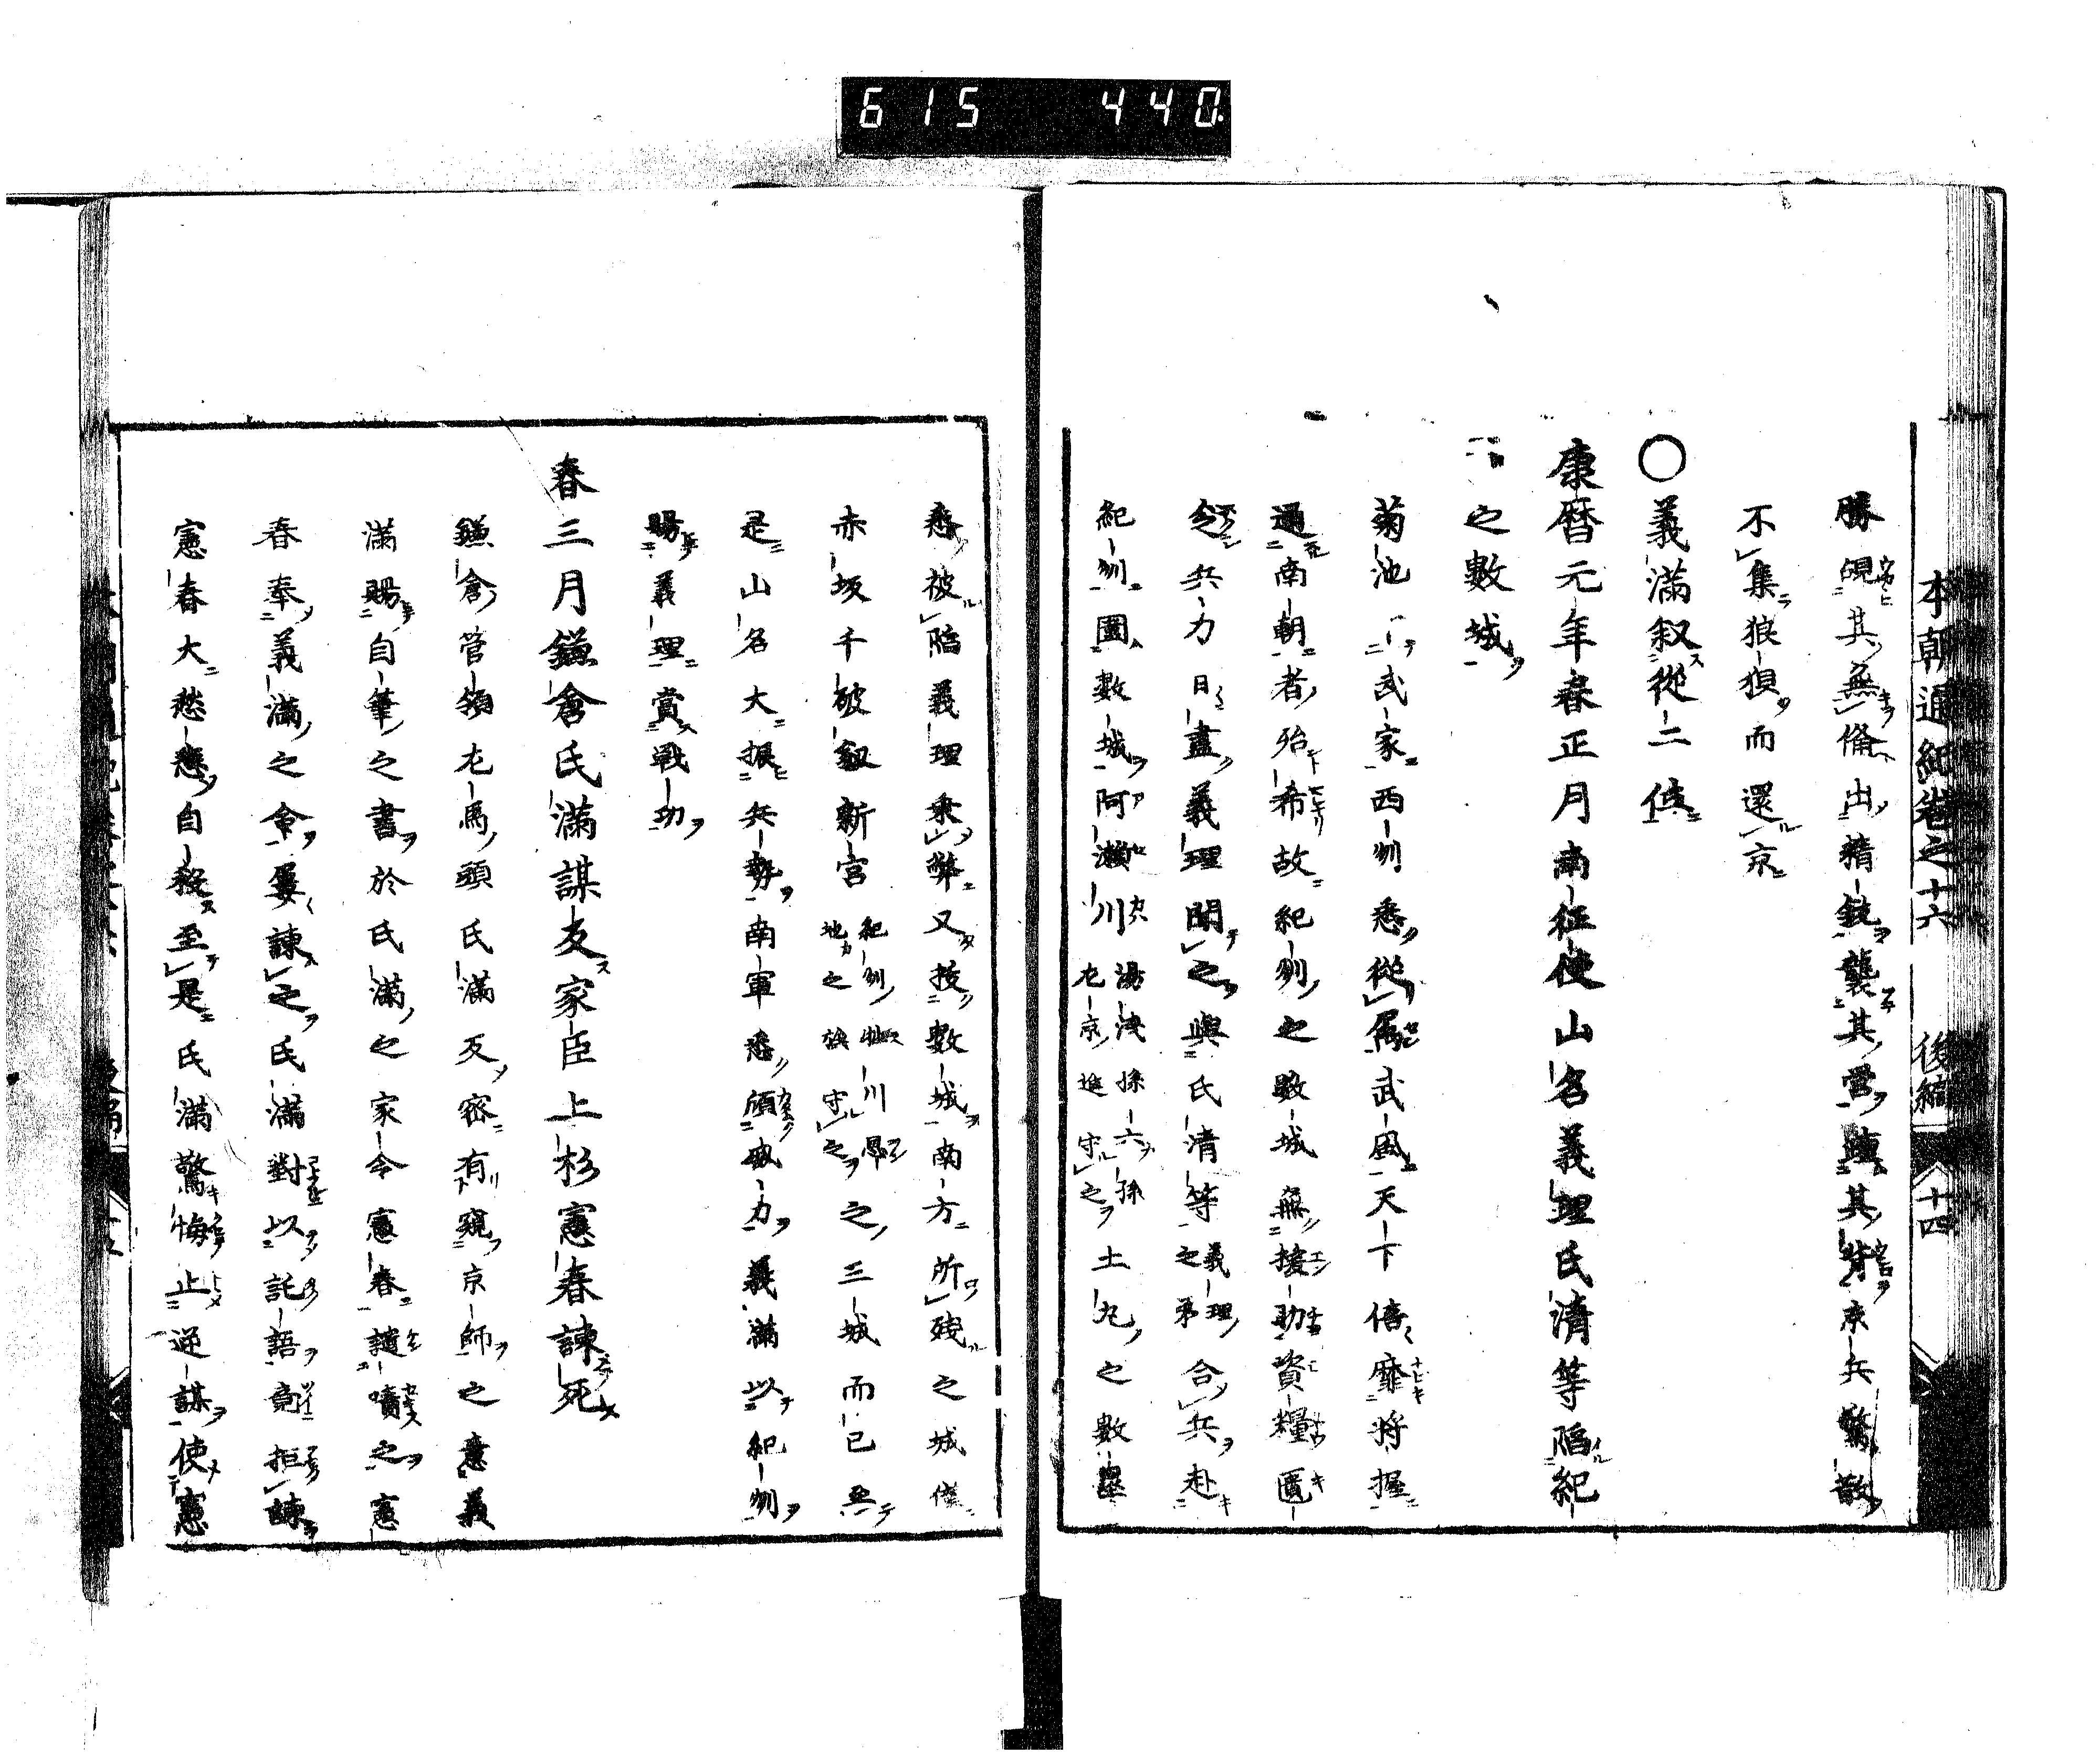 615 440
本朝通紀卷之十六 後編 十四
勝覘其無備出精銳襲其營其背京兵驚散
不集狼狽而還京
○義滿叙從二位
康暦元年春正月南征使山名義理氏清等陷紀
一刕之數城
菊池亡武家西刕悉從属武風天下倍靡將握
通南朝者殆希故紀刕之數城無援助資糧匱
兵力日盡義理聞之與氏清等義理之弟合兵赴
紀刕圍數城阿瀨川湯浅孫六孫左京進守之土丸之數壘
悉被陷義理乘弊又拔數城南方所殘之城僅
赤坂千破劔新宮紀刕川地之族守之之三城而已
是山名大振兵勢南軍悉威力義滿以紀刕
賜義理賞戰功
春三月鎌倉氏滿謀反家臣上杉憲春諫死
鎌倉管領左馬頭氏滿反密有窺京師之意義
滿賜自筆之書於氏滿之家令憲春譴之憲
春奉義滿之命屢諫之氏滿對以託語竟拒諫
憲春大愁自殺至是氏滿驚悔止逆謀使憲